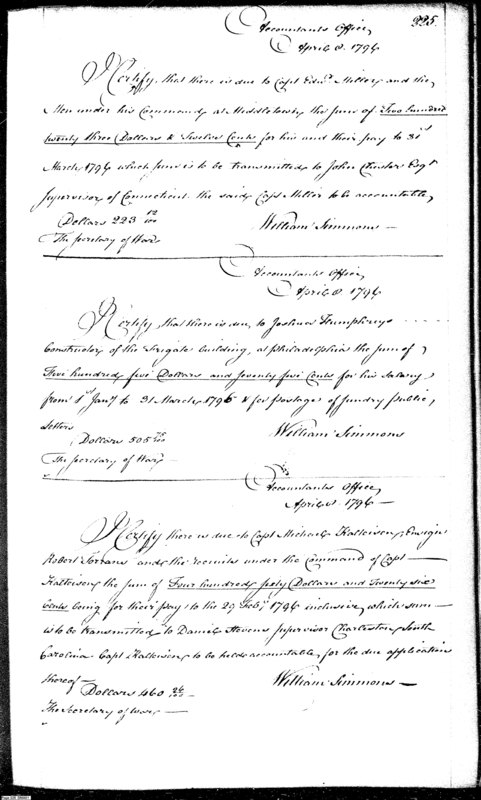 225.
Accountants Office,
April 8. 1796
I Certify, that there is due to Capt Edwd. Miller, and the
Men under his Command, at Middletown, the sum of Two hundred
twenty three Dollars & Twelve Cents for his and their pay to 31st
March 1796 which sum is to be transmitted to John Chester Esqr
Supervisor of Connecticut. the said Capt Miller to be accountable,
Dollars 223 12/100
William Simmons
The Secretary of War
Accountants Office,
April 8. 1796
I Certify, that there is due, to Joshua Humphreys
Constructor of the Frigate building, at Philadelphia the sum of
Five hundred five Dollars and seventy five Cents for his Salary
from 1st Jany to 31 March 1796 & for postage of sundry Public,
Letters
Dollars 505 75/100
William Simmons
The Secretary of War
Accountants Office,
April 8. 1796
I Certify there is due to Capt Michael Kalteisen, Ensign
Robert and the recruits under the command of Capt
Kalteisen, the sum of Four hundred sixty Dollars and Twenty six
Cents being for their pay to the 29 Feby 1796 inclusive, which sum
is to be transmitted to Daniel Stevens Supervisor Charleston, South
Carolina. Capt Kalteisen, to be held accountable, for the due application
thereof
Dollars 460 26/100
William Simmons
The Secretary of War